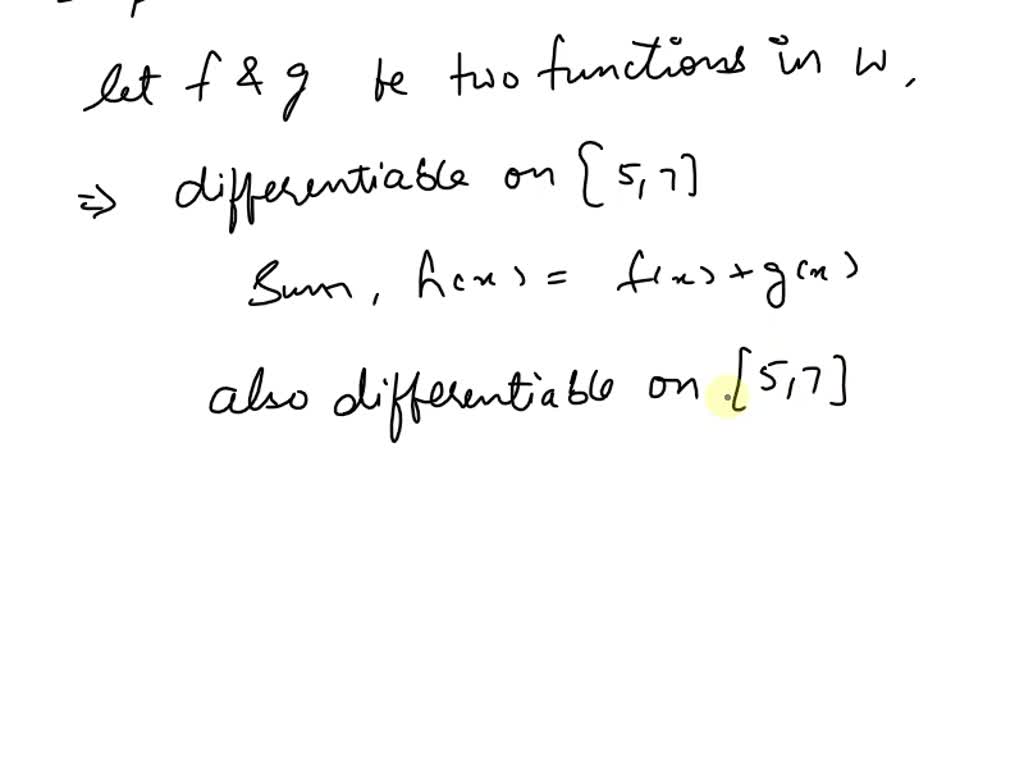 let f & g be two functions in W,
⇒ differentiable on [5,7]
Sum, h(x) = f(x) + g(x)
also differentiable on [5,7]